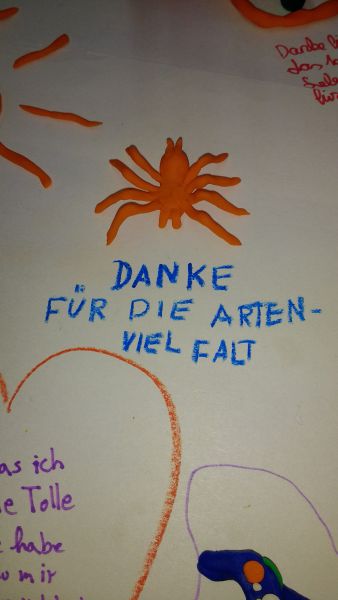 Danke
DANKE
FÜR DIE ARTEN-
VIEL FALT
as ich
e Tolle
habe
mir